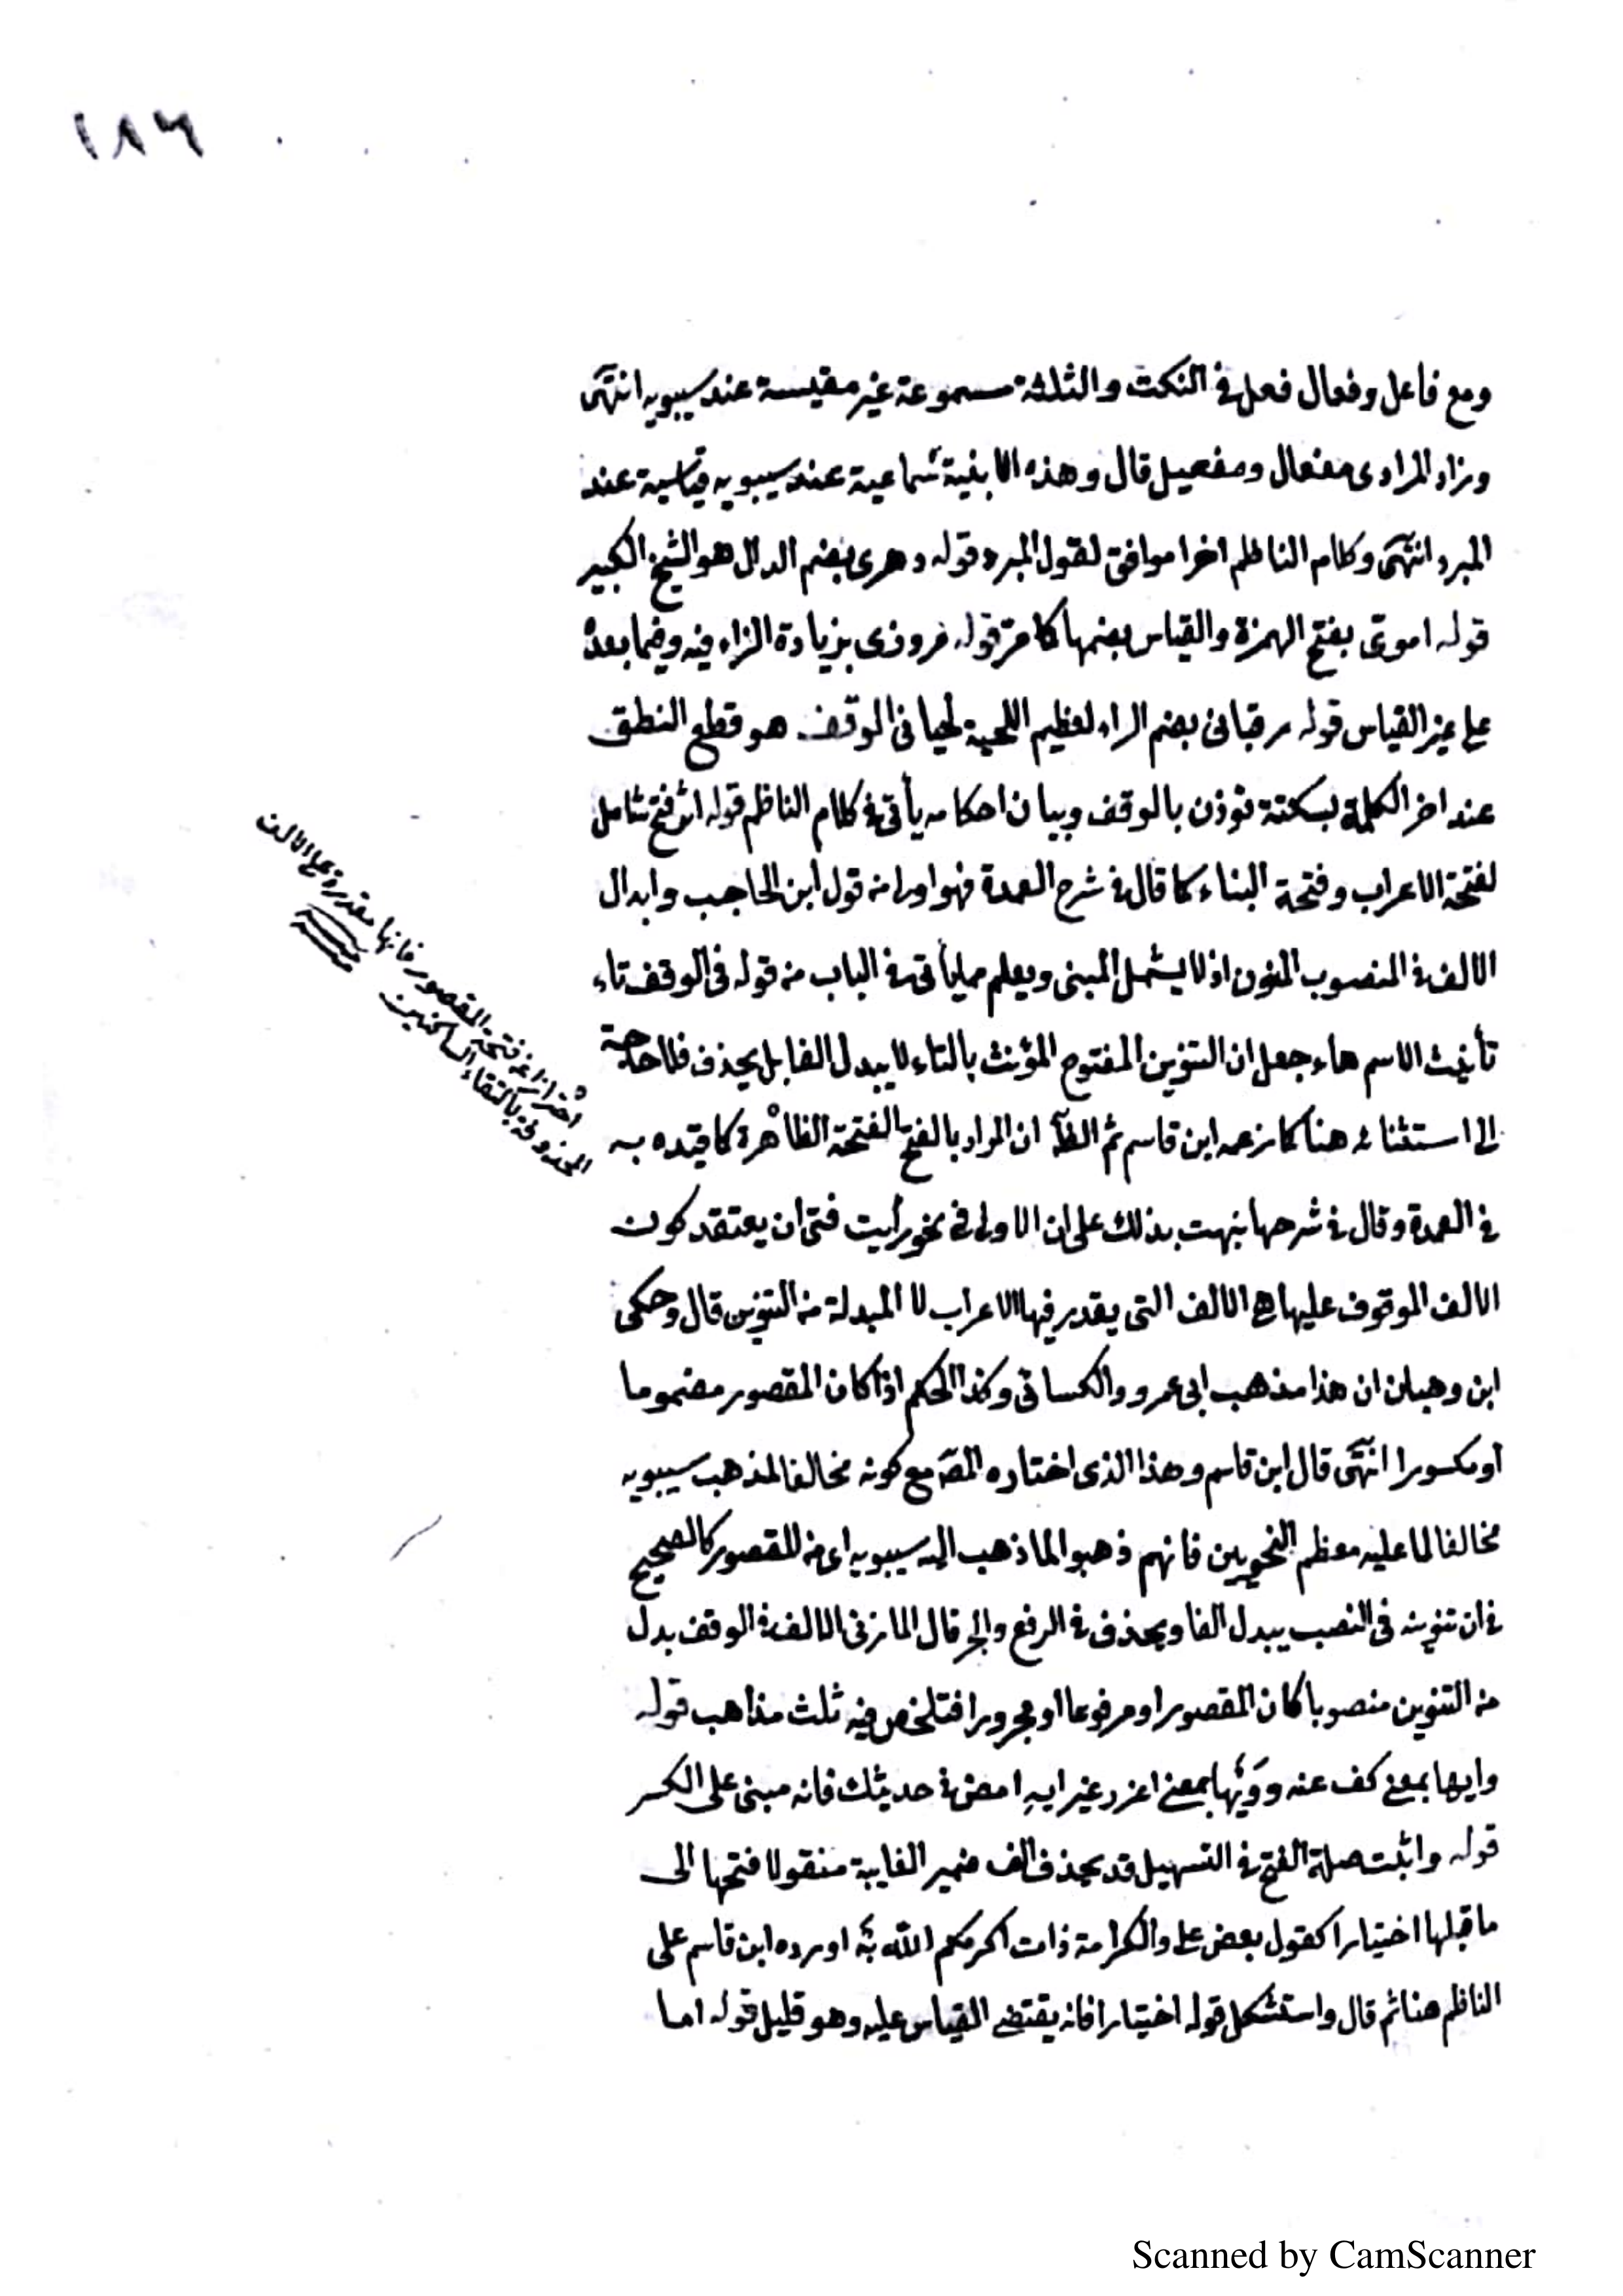 ١٨٦
ومع فاعل وفعال فعل في النكت والثلثة مسموعة غير مقيسة عند سيبويه انتهى
وزاد المرادى مفعال ومفعيل قال وهذه الابنية سماعية عند سيبويه قياسية عند
المبرد انتهى وكلام الناظم اخرا موافق لقول المبرد قوله دهرى بضم الدال هو الشيخ الكبير
قوله اموى بفتح الهمزة والقياس بضمها كما مر قوله مروزى بزيادة الزاء فيه وفيما بعده
على غير القياس قوله رقبانى بضم الراء لعظيم اللحية لحيانى الوقف هو قطع النطق
عند اخر الكلمة بسكتة تؤذن بالوقف وبيان احكامه يأتى في كلام الناظم قوله اثر فتح شامل
لفتحة الاعراب وفتحة البناء كما قال في شرح العمدة فهو اولى من قول ابن الحاجب وابدال
الالف في المنصوب المنون اذ لا يشمل المبنى ويعلم مما يأتى في الباب من قوله فى الوقف تاء
تأنيث الاسم هاء جعل ان التنوين المفتوح المؤنث بالتاء لا يبدل الفا بل يحذف فلا حاجة
الى استثنائه هنا كما زعمه ابن قاسم ثم الظآ ان المراد بالفتح الفتحة الظاهرة كما قيده به
في العمدة وقال في شرحها نبهت بذلك على ان الاولى فى نحو رأيت فتى ان يعتقد كون
الالف الموقوف عليها هي الالف التى يقدر فيها الاعراب لا المبدلة من التنوين قال وحكى
ابن وهبان ان هذا مذهب ابى عمرو والكسائى وكذا الحكم اذا كان المقصور مضموما
او مكسورا انتهى قال ابن قاسم وهذا الذى اختاره المصـ مع كونه مخالفا لمذهب سيبويه
مخالفا لما عليه معظم النحويين فانهم ذهبوا الى ما ذهب اليه سيبويه اى من للقصور كالصحيح
في ان تنوينه فى النصب يبدل الفا ويحذف في الرفع والجر قال المازنى الالف في الوقف بدل
من التنوين منصوبا كان المقصور او مرفوعا او مجرورا فتلخص فيه ثلث مذاهب قوله
وايها بمعنى كف عنه ووَيْها بمعنى اغر غير ايهِ امض في حديثك فانه مبنى على الكسر
قوله واثبت صلة الفتح في التسهيل قد يحذف الف ضمير الغايبة منقولا فتحها الى
ما قبلها اختيارا كقول بعض طي والكرامة ذات اكرمكم الله بَهْ اورده ابن قاسم على
الناظم هنا ثم قال واستشكل قوله اختيارا فانه يقتضى القياس عليه وهو قليل قوله اما
احترازا عن فتحة المقصور فانها مقدرة على الالف
المحذوفة بالتقاء الساكنين
Scanned by CamScanner